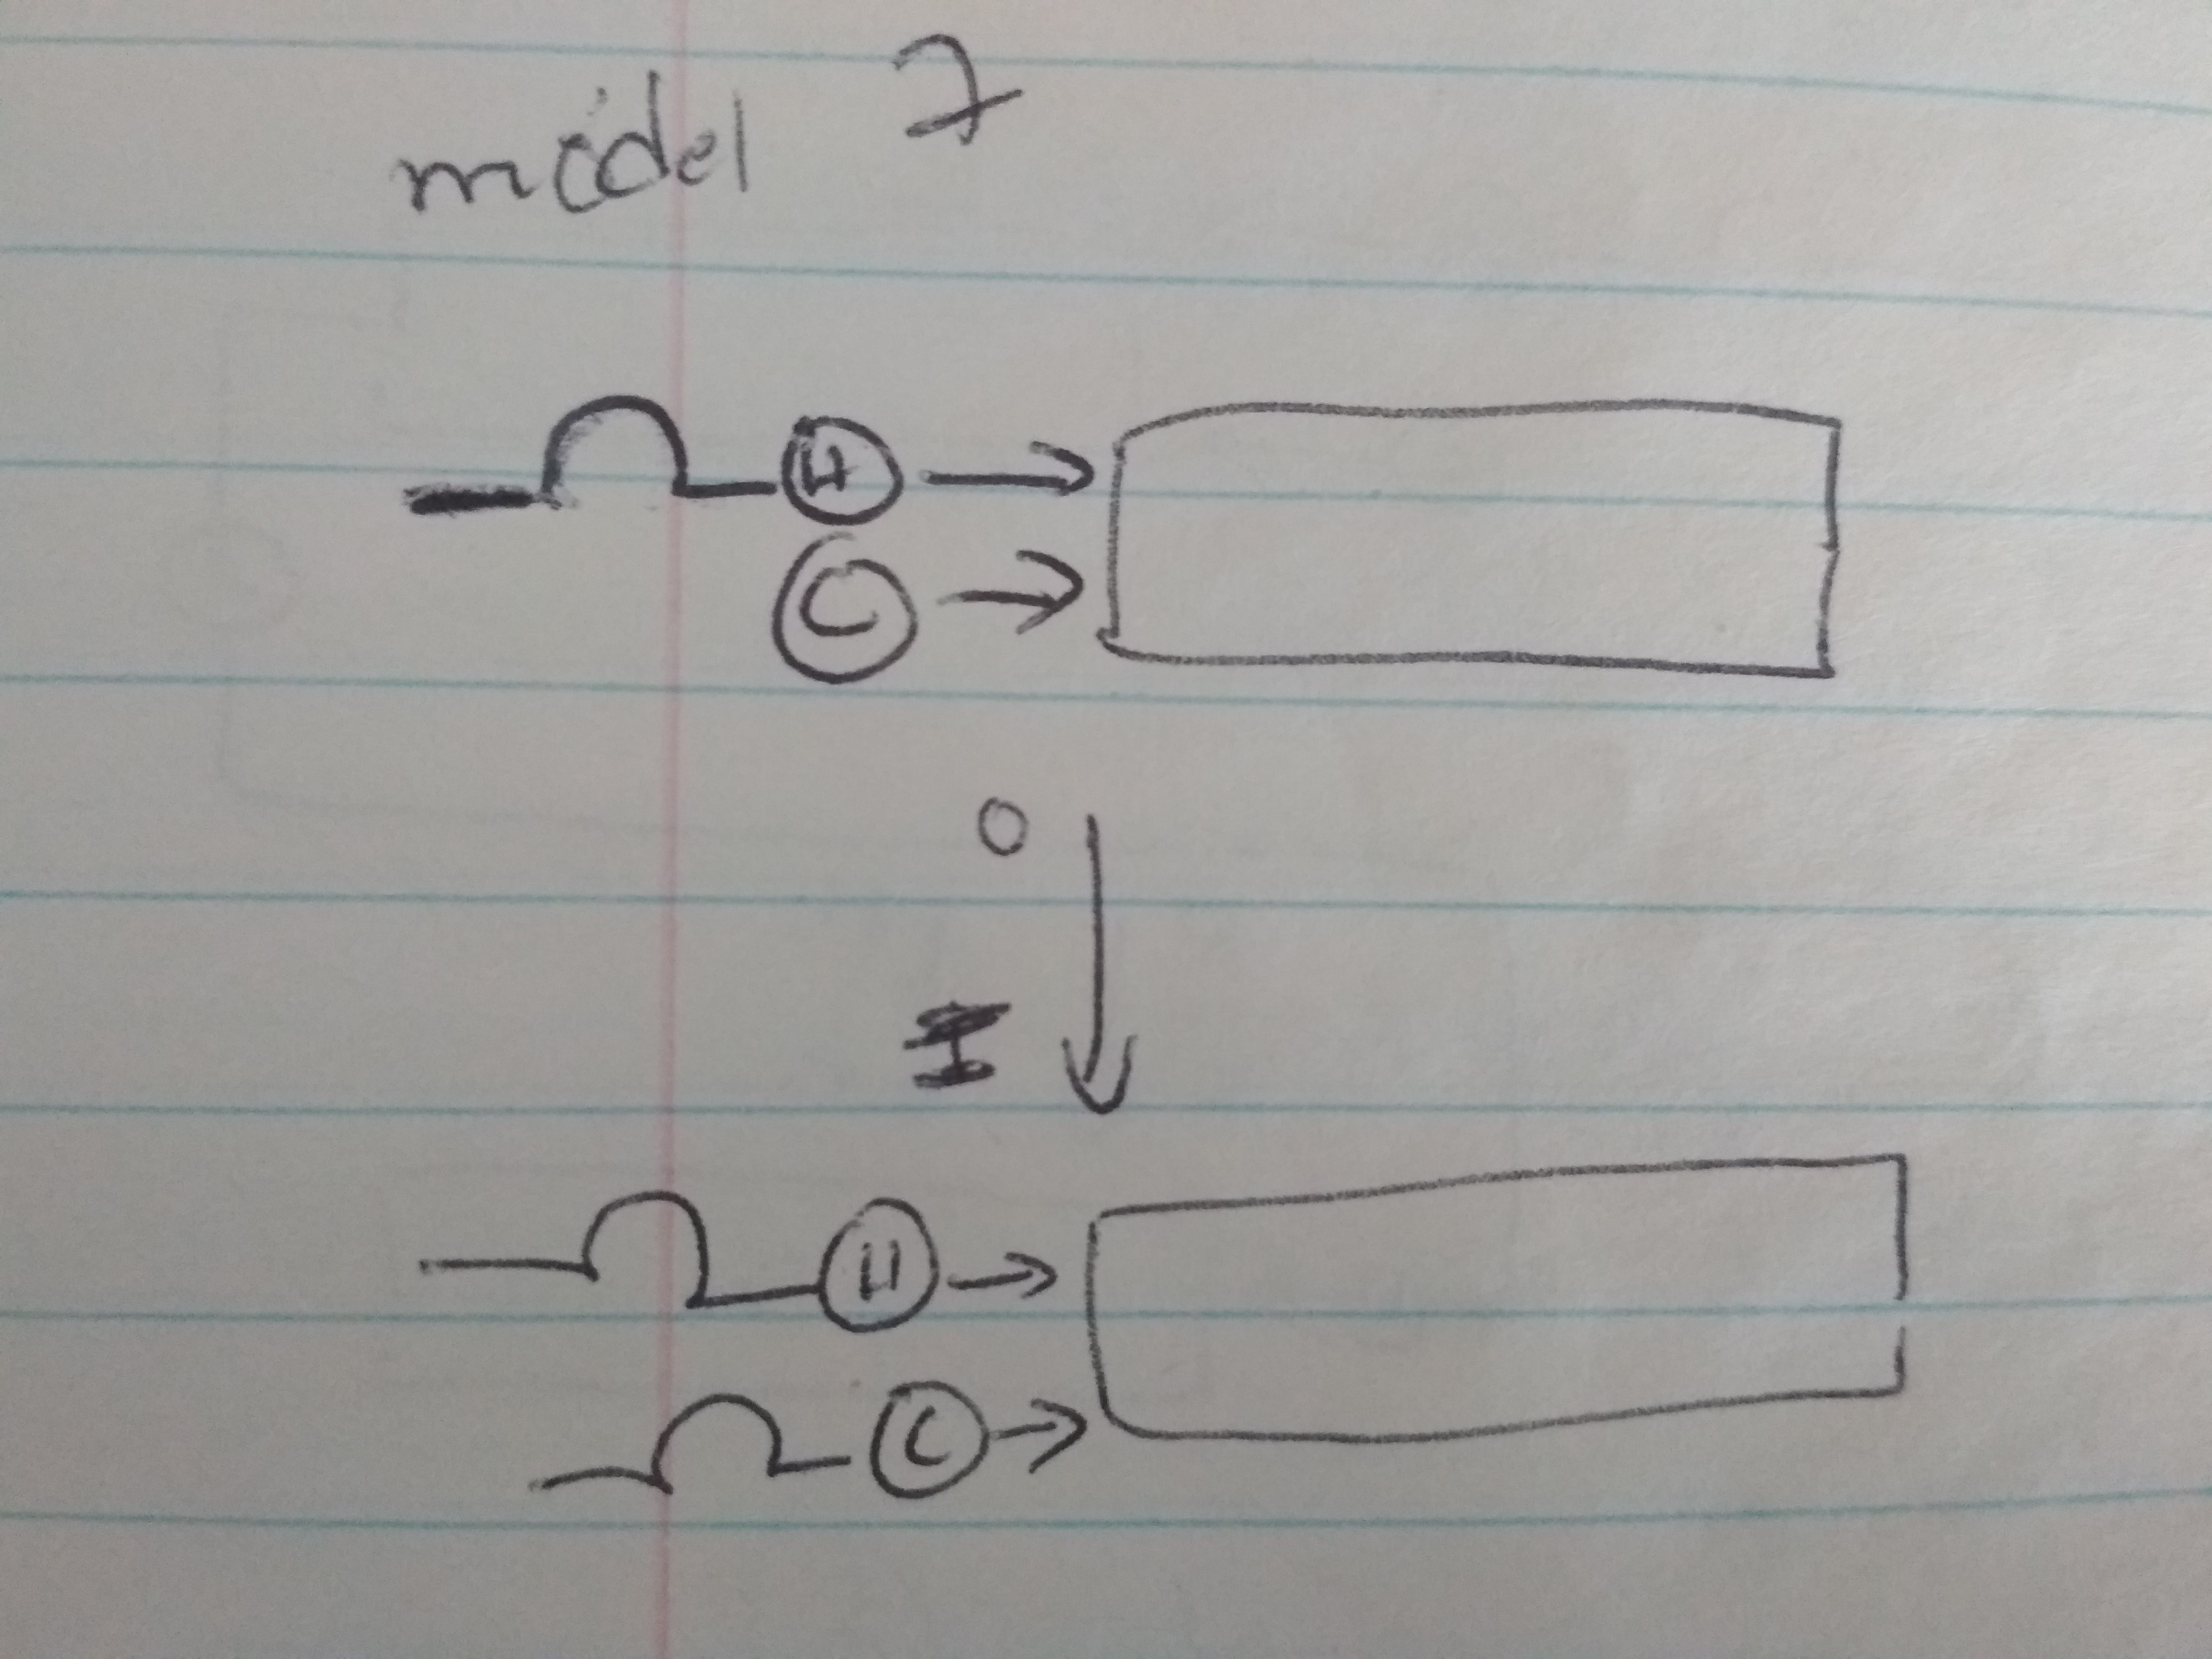 model 7
H
C
O
I
H
C